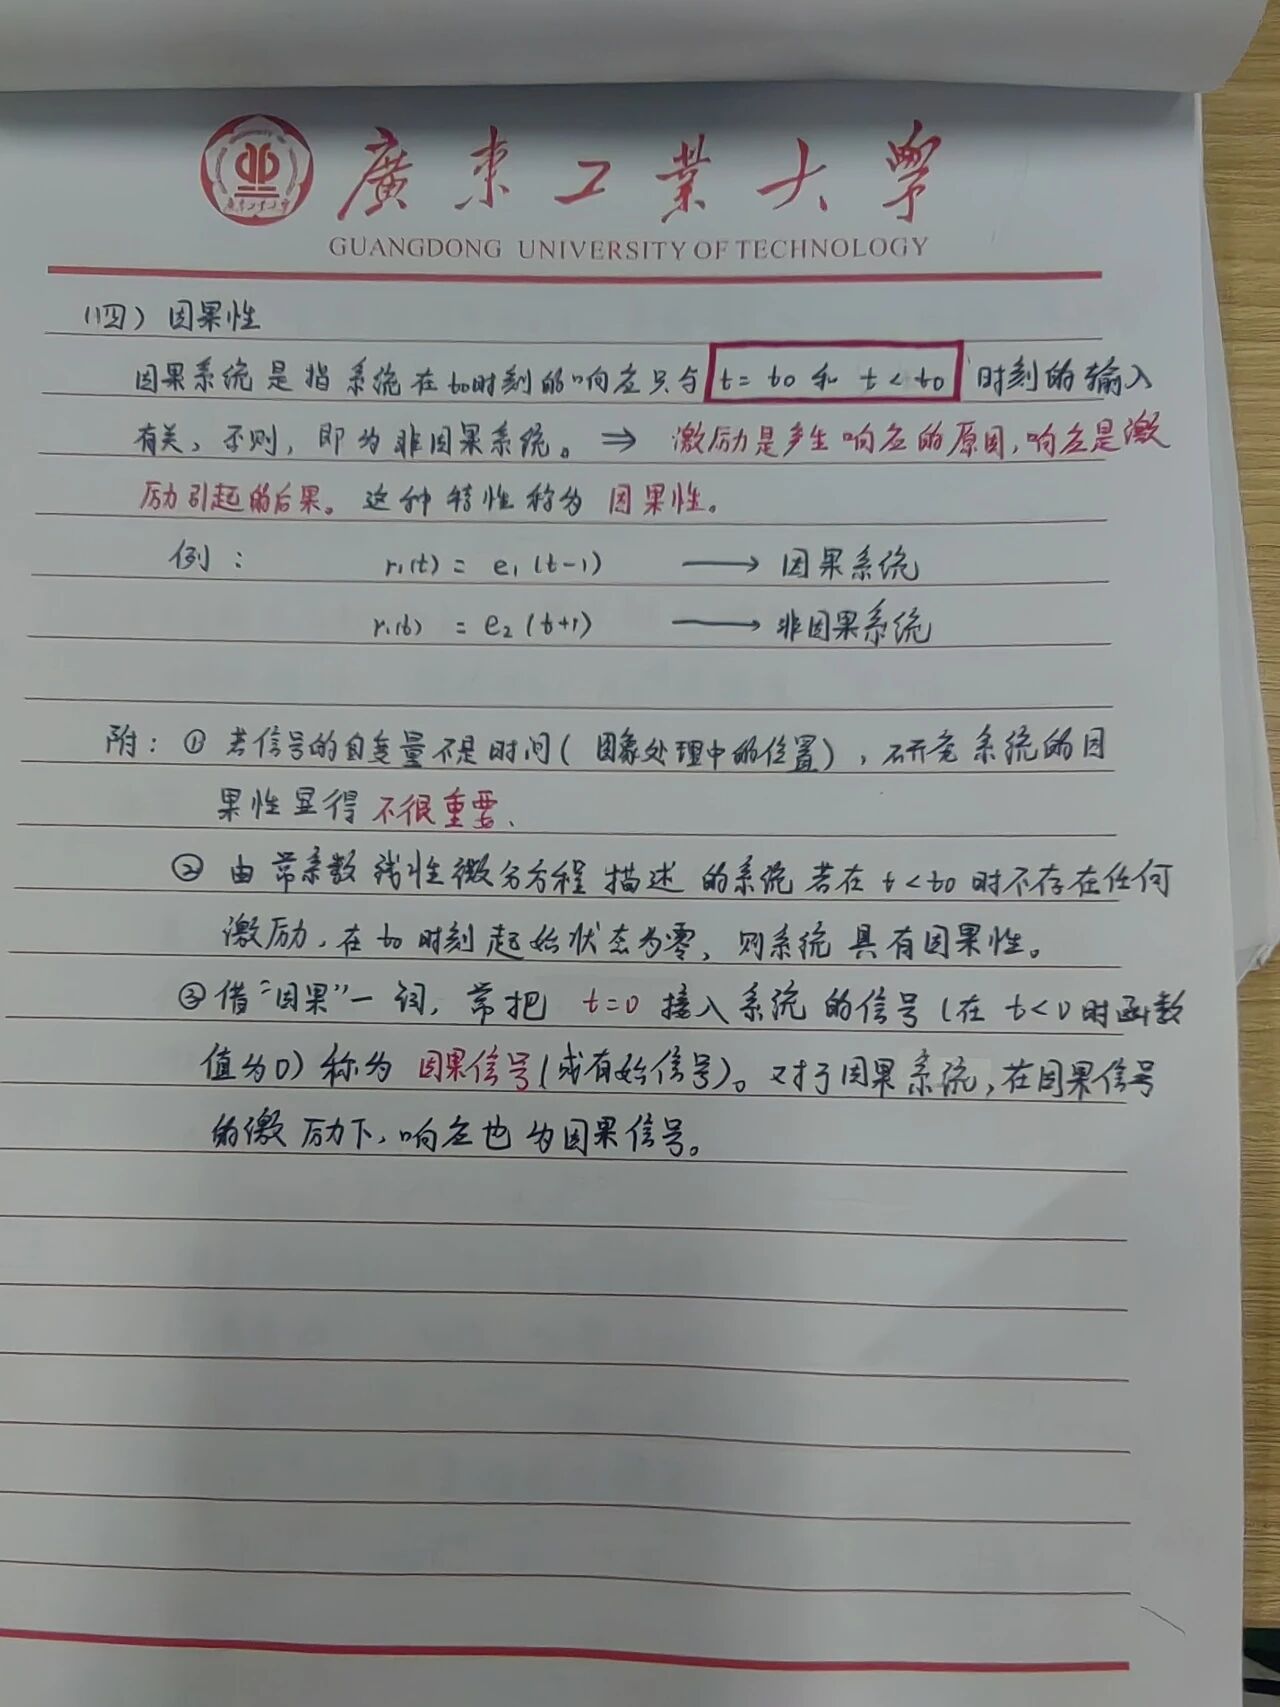 廣東工業大學
GUANGDONG UNIVERSITY OF TECHNOLOGY
(四) 因果性
因果系统是指系统在t0时刻的响应只与 t=t0 和 t<t0 时刻的输入
有关,否则,即为非因果系统。⇒ 激励是产生响应的原因,响应是激
励引起的后果。这种特性称为 因果性。
例: r1(t) = e1(t-1) ⟶ 因果系统
r1(t) = e2(t+1) ⟶ 非因果系统
附: ① 若信号的自变量不是时间(图象处理中的位置),研究系统的因
果性显得 不很重要、
② 由常系数线性微分方程描述的系统若在t<t0时不存在任何
激励,在t0时刻起始状态为零,则系统具有因果性。
③ 借“因果”一词,常把 t=0 接入系统的信号(在 t<0时函数
值为0)称为 因果信号(或有始信号)。对于因果系统,在因果信号
的激励下,响应也为因果信号。